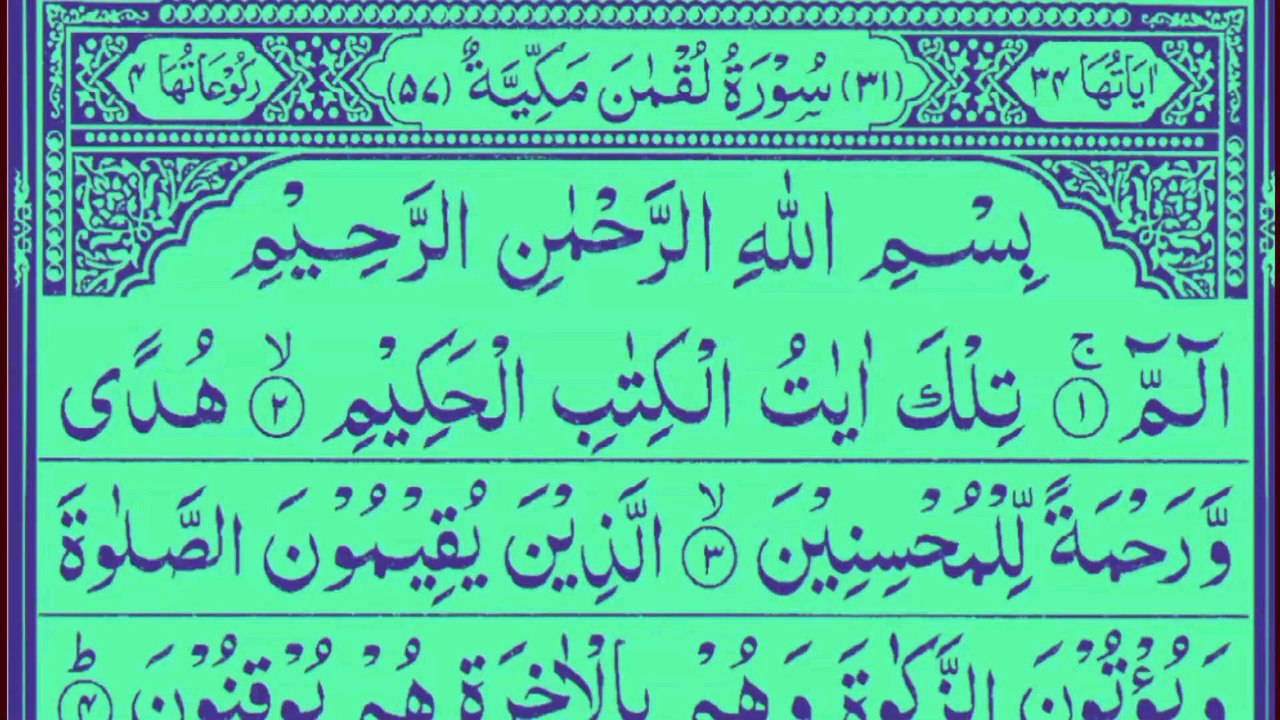 اٰيَاتُهَا ٣٤ (٣١) سُوْرَةُ لُقْمٰنَ مَكِّيَّةٌ (٥٧) رُكُوْعَاتُهَا ٤
بِسْمِ اللّٰهِ الرَّحْمٰنِ الرَّحِيْمِ
الٓـمّٓ ۚ ﴿١﴾ تِلْكَ اٰيٰتُ الْكِتٰبِ الْحَكِيْمِ ۙ ﴿٢﴾ هُدًى
وَّرَحْمَةً لِّلْمُحْسِنِيْنَ ۙ ﴿٣﴾ الَّذِيْنَ يُقِيْمُوْنَ الصَّلٰوةَ
وَيُؤْتُوْنَ الزَّكٰوةَ وَهُمْ بِالْاٰخِرَةِ هُمْ يُوْقِنُوْنَ ؕ ﴿٤﴾